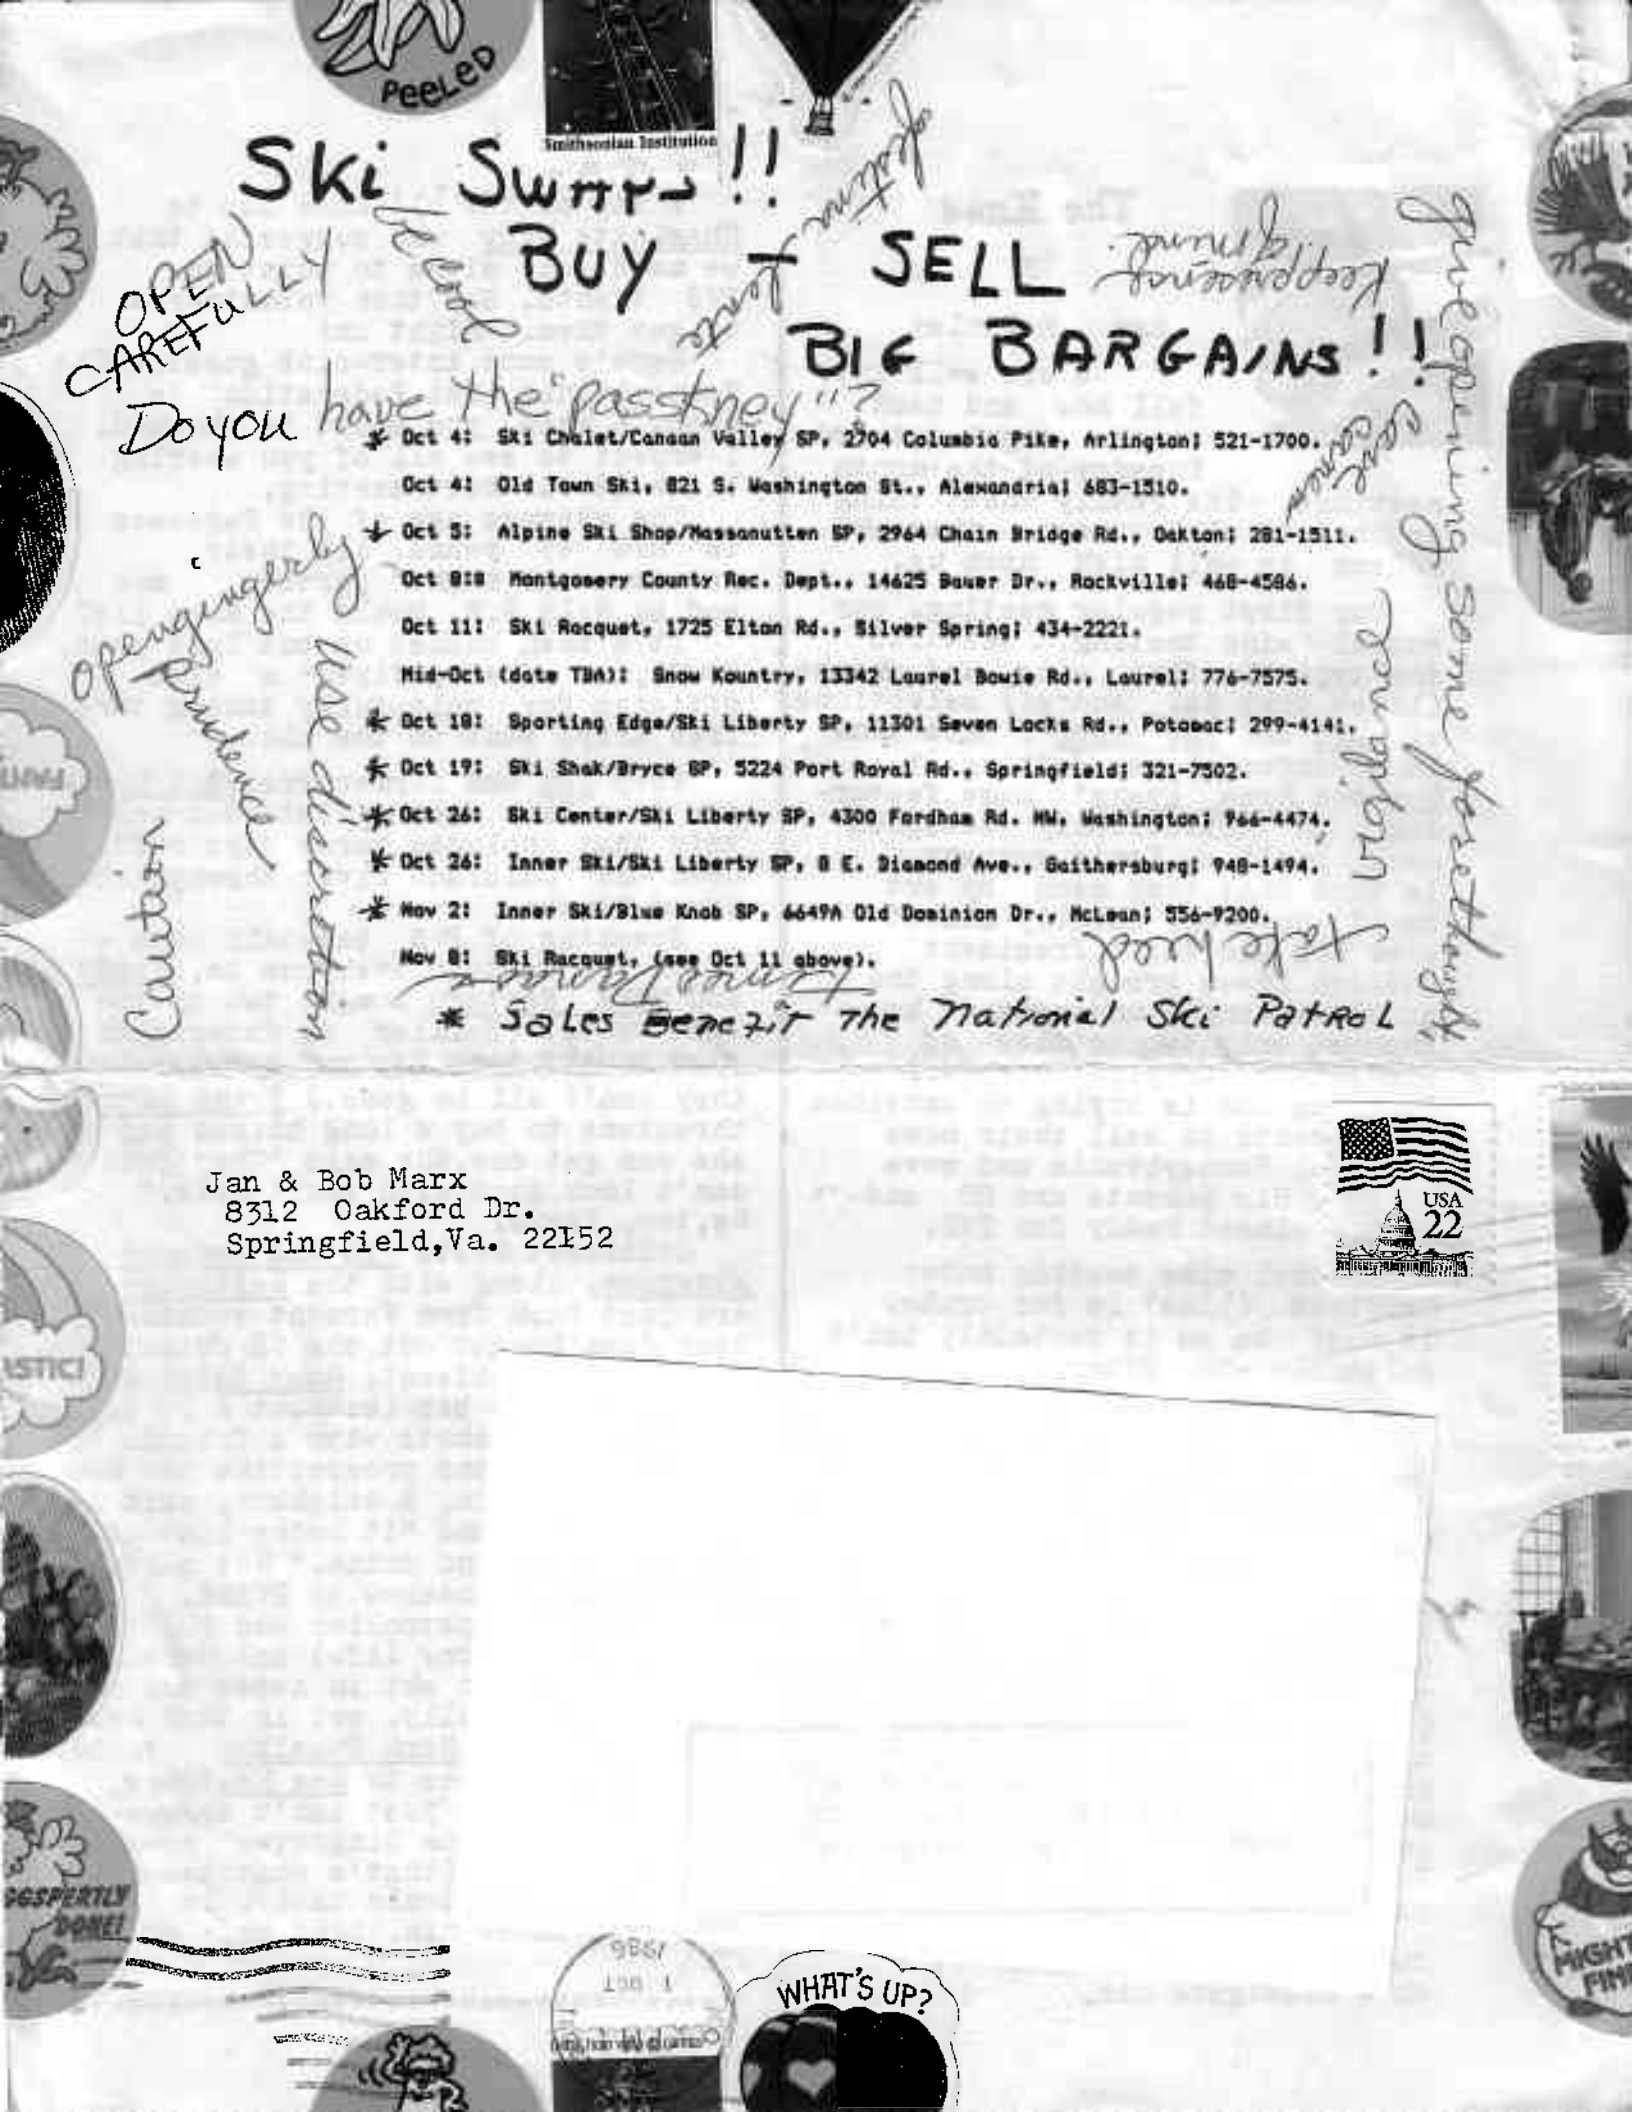 PEELED
Smithsonian Institution
Ski Swaps!!
BUY - SELL
BIG BARGAINS!!
OPEN
CAREFULLY
be cool
festina lente
keep presence
of mind.
give opening some forethought
Do you have the "passtkney"?
cast
cares
* Oct 4: Ski Chalet/Canaan Valley SP, 2704 Columbia Pike, Arlington; 521-1700.
Oct 4: Old Town Ski, 821 S. Washington St., Alexandria; 683-1510.
* Oct 5: Alpine Ski Shop/Massanutten SP, 2964 Chain Bridge Rd., Oakton; 281-1511.
Oct 8: Montgomery County Rec. Dept., 14625 Bauer Dr., Rockville; 468-4586.
Oct 11: Ski Racquet, 1725 Elton Rd., Silver Spring; 434-2221.
Mid-Oct (date TBA): Snow Kountry, 13342 Laurel Bowie Rd., Laurel; 776-7575.
* Oct 18: Sporting Edge/Ski Liberty SP, 11301 Seven Locks Rd., Potomac; 299-4141.
* Oct 19: Ski Shak/Bryce SP, 5224 Port Royal Rd., Springfield; 321-7502.
* Oct 26: Ski Center/Ski Liberty SP, 4300 Fordham Rd. NW, Washington; 966-4474.
* Oct 26: Inner Ski/Ski Liberty SP, 8 E. Diamond Ave., Gaithersburg; 948-1494.
* Nov 2: Inner Ski/Blue Knob SP, 6649A Old Dominion Dr., McLean; 556-9200.
Nov 8: Ski Racquet, (see Oct 11 above).
open gingerly
prudence
use discretion
Caution
vigilance
take heed
* Sales Benefit The National Ski Patrol
Jan & Bob Marx
8312 Oakford Dr.
Springfield,Va. 22152
USA
22
ASTIC!
GGSPERTLY
DONE!
1 OCT
1986
WHAT'S UP?
MIGHT
FIN